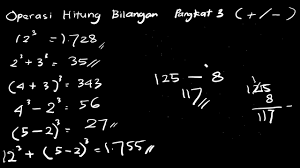 Operasi Hitung Bilangan Pangkat 3 (+/-)
12³ = 1.728
2³ + 3³ = 35
(4 + 3)³ = 343
4³ - 2³ = 56
(5 - 2)³ = 27
12³ + (5 - 2)³ = 1.755
125 - 8
117
125
8
117